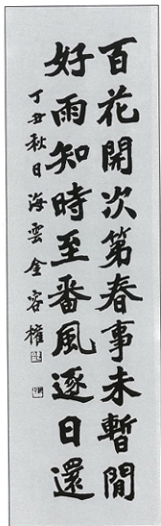 百花開次第春事未暫閒
好雨知時至番風逐日還
丁丑秋日海雲金容權